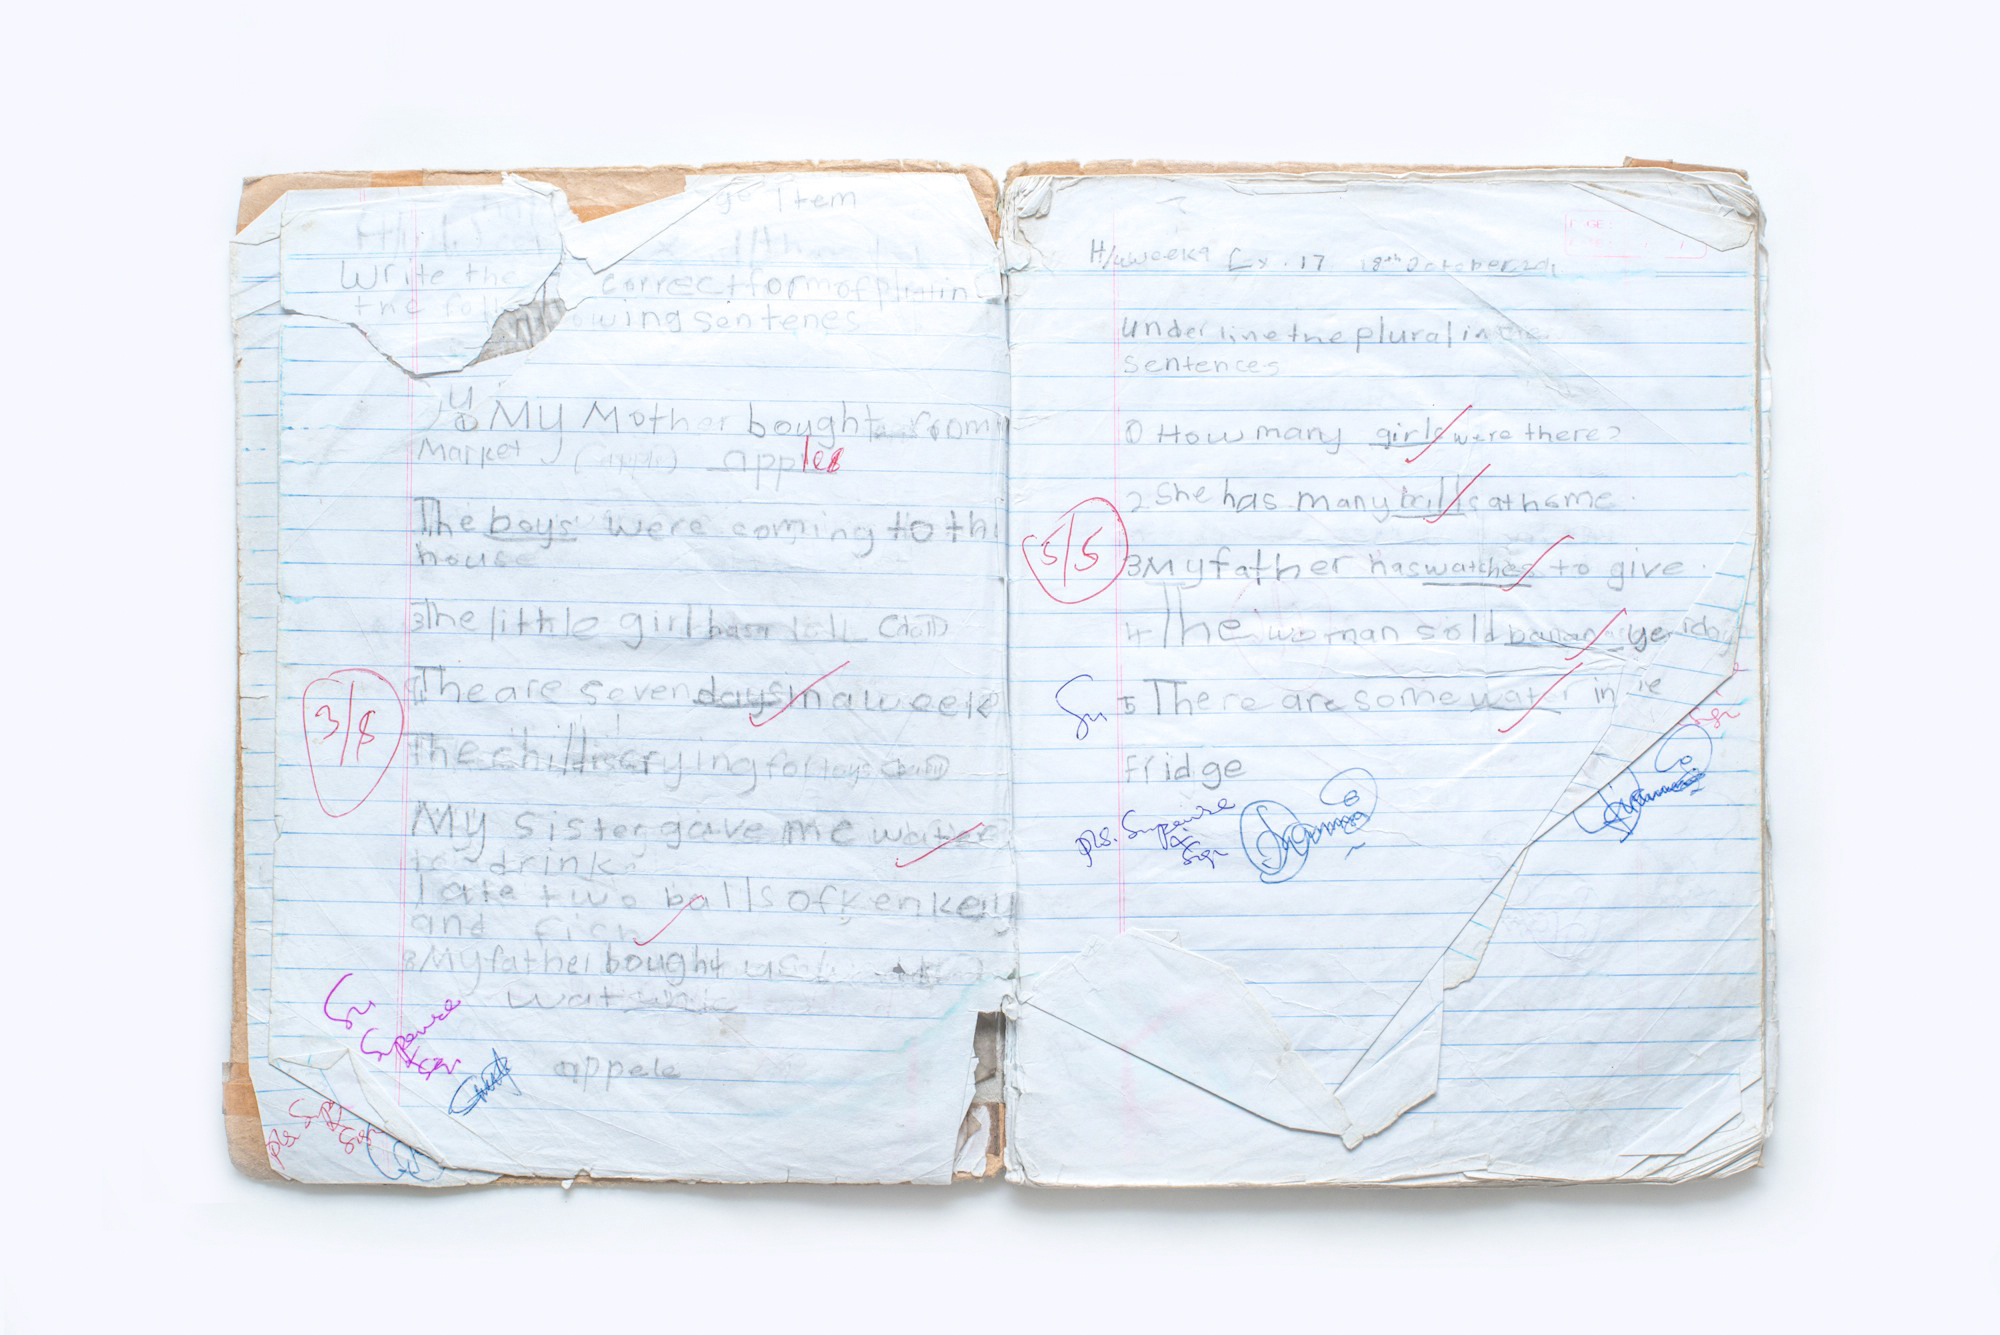 ge Item
Write the correct form of plural in
the foll owing sentenes
My Mother bought from
Market (apple) apples
The boys were coming to thi
house
3 The little girl has a doll (doll)
The are seven days in a week
The child is crying for toys
My sister gave me
to drink
I ate two balls of kenkey
and fish
8 My father bought
appele
3/8
Su
Supervise
+ sign
pls Sup
+ Sign
H/w week 9 Ex. 17 18th October
Underline the plural in the
sentences
How many girls were there?
2 She has many balls at home.
3 My father has watches to give.
4 The woman sold yesterday
5 There are some water in
Fridge
5/5
Su
pls. Supervise
+
Sign
Sign